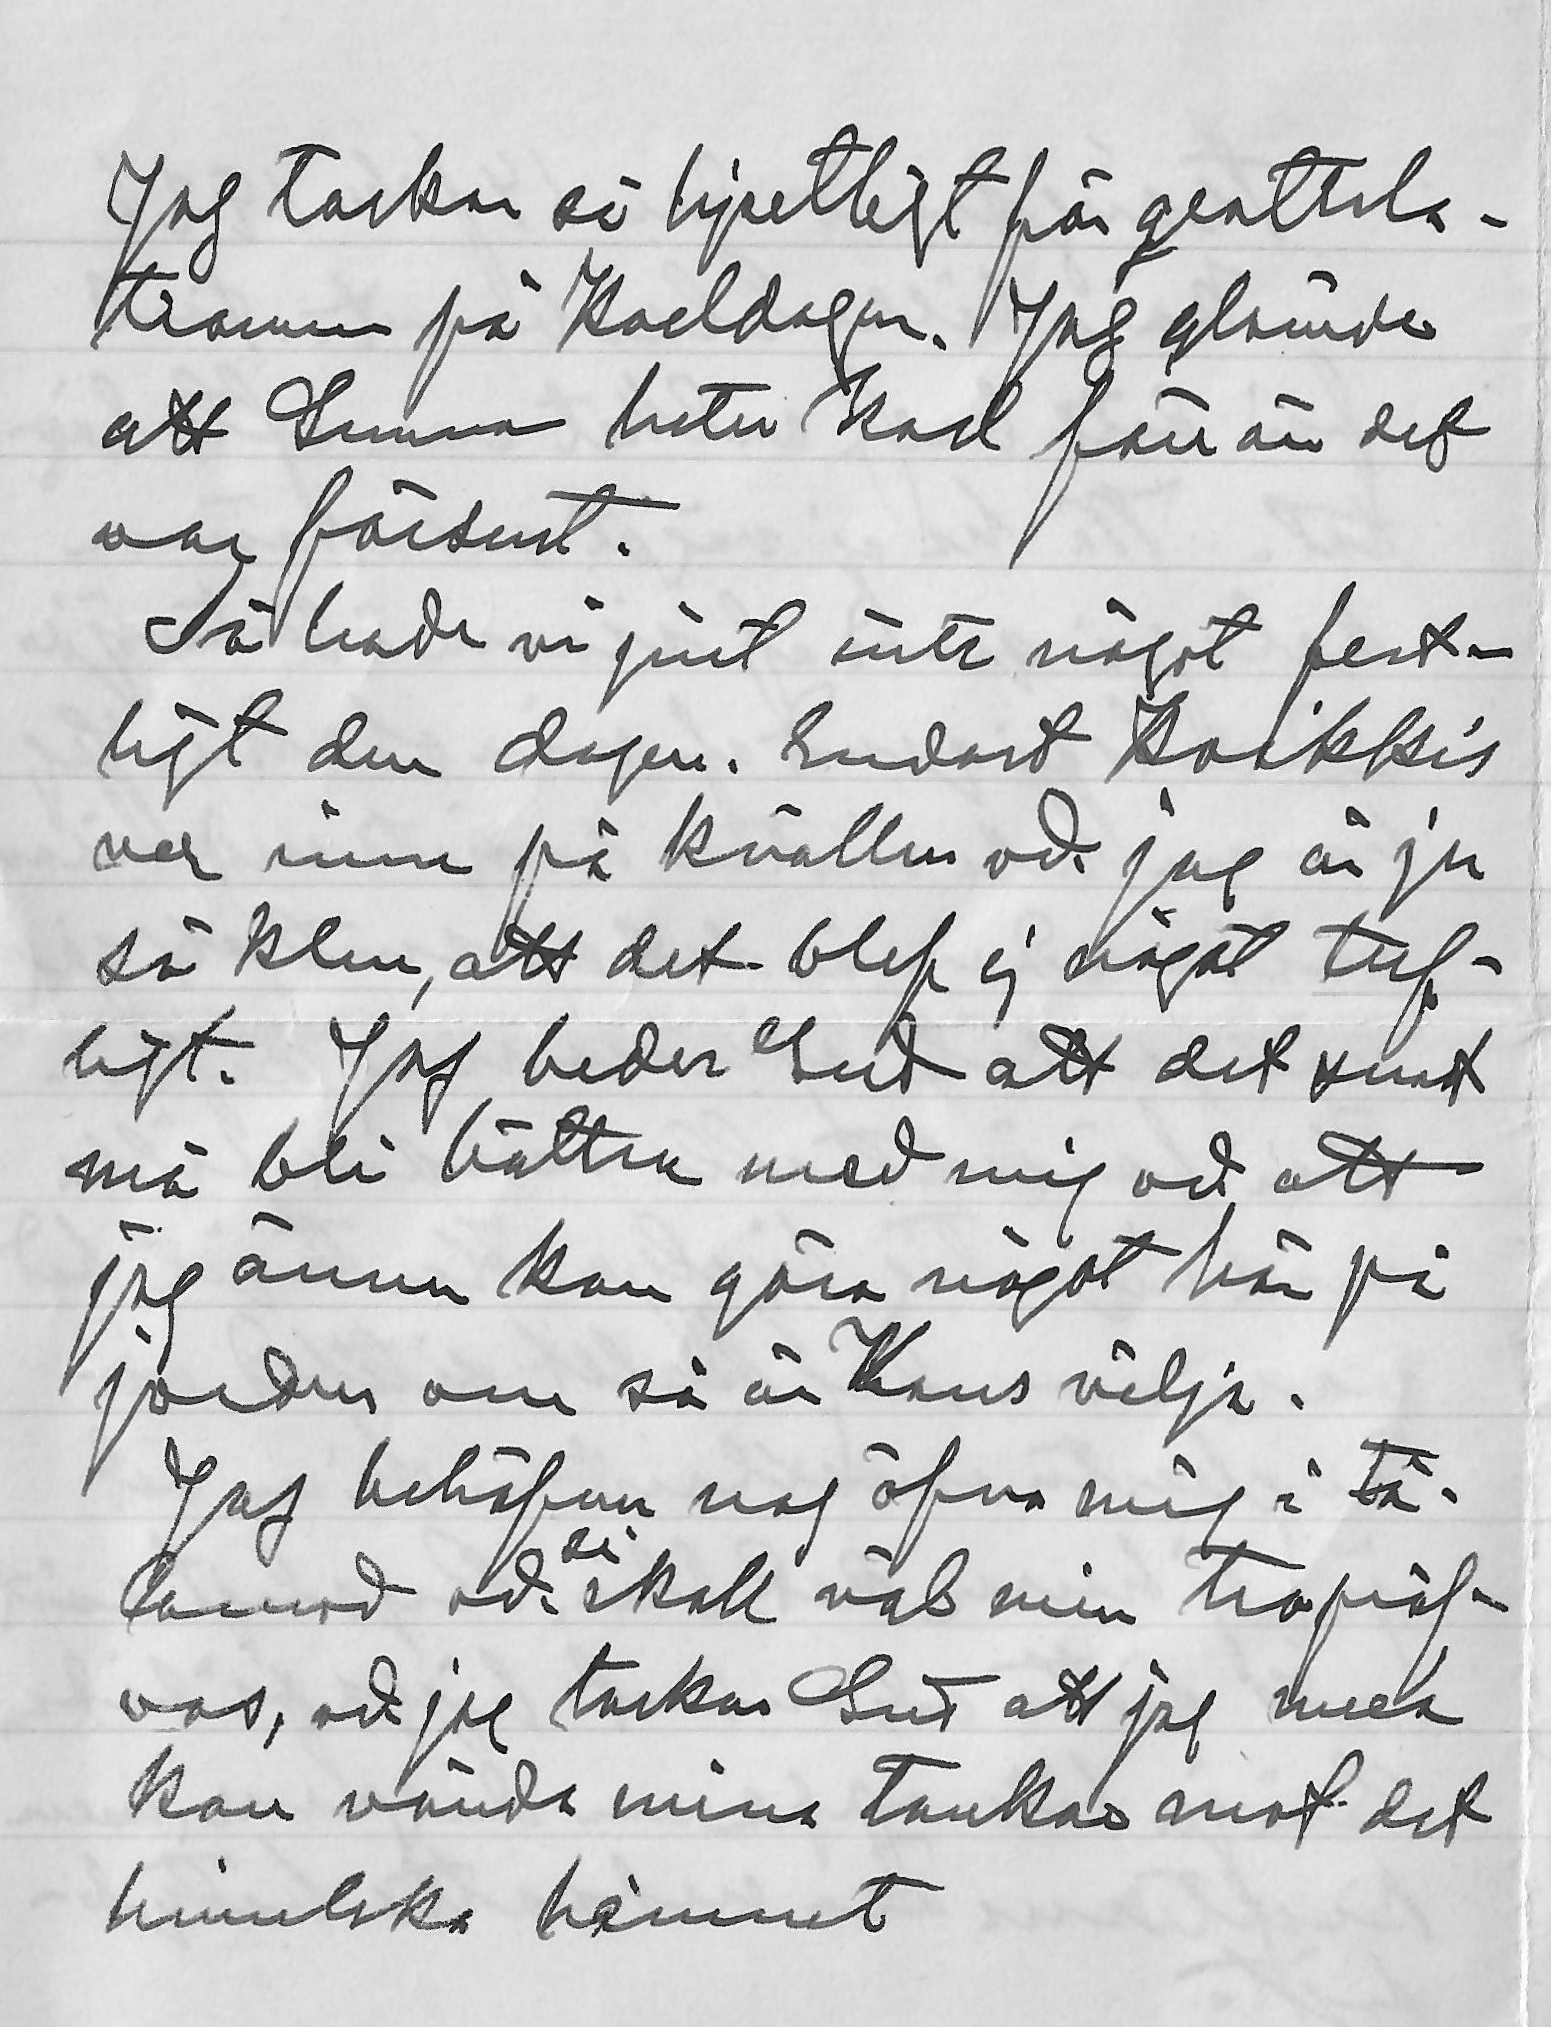 Jag tackar så hjertligt för gratula-
tionen på Karldagen. Jag glömde
att Gunnar heter Karl förr än det
var försent.
Så hade vi just inte något fest-
ligt den dagen. Endast Kaikkis
var inne på kvällen och jag är ju
så klen, att det blef ej något tref-
ligt. Jag beder Gud att det snart
må bli bättre med mig och att
jag ännu kan göra något här på
jorden om så är Hans vilja.
Jag behöfver nog öfva mig i tå-
lamod och så skall väl min tro pröf-
vas, och jag tackar Gud att jag mera
kan vända mina tankar mot det
himmelska hemmet